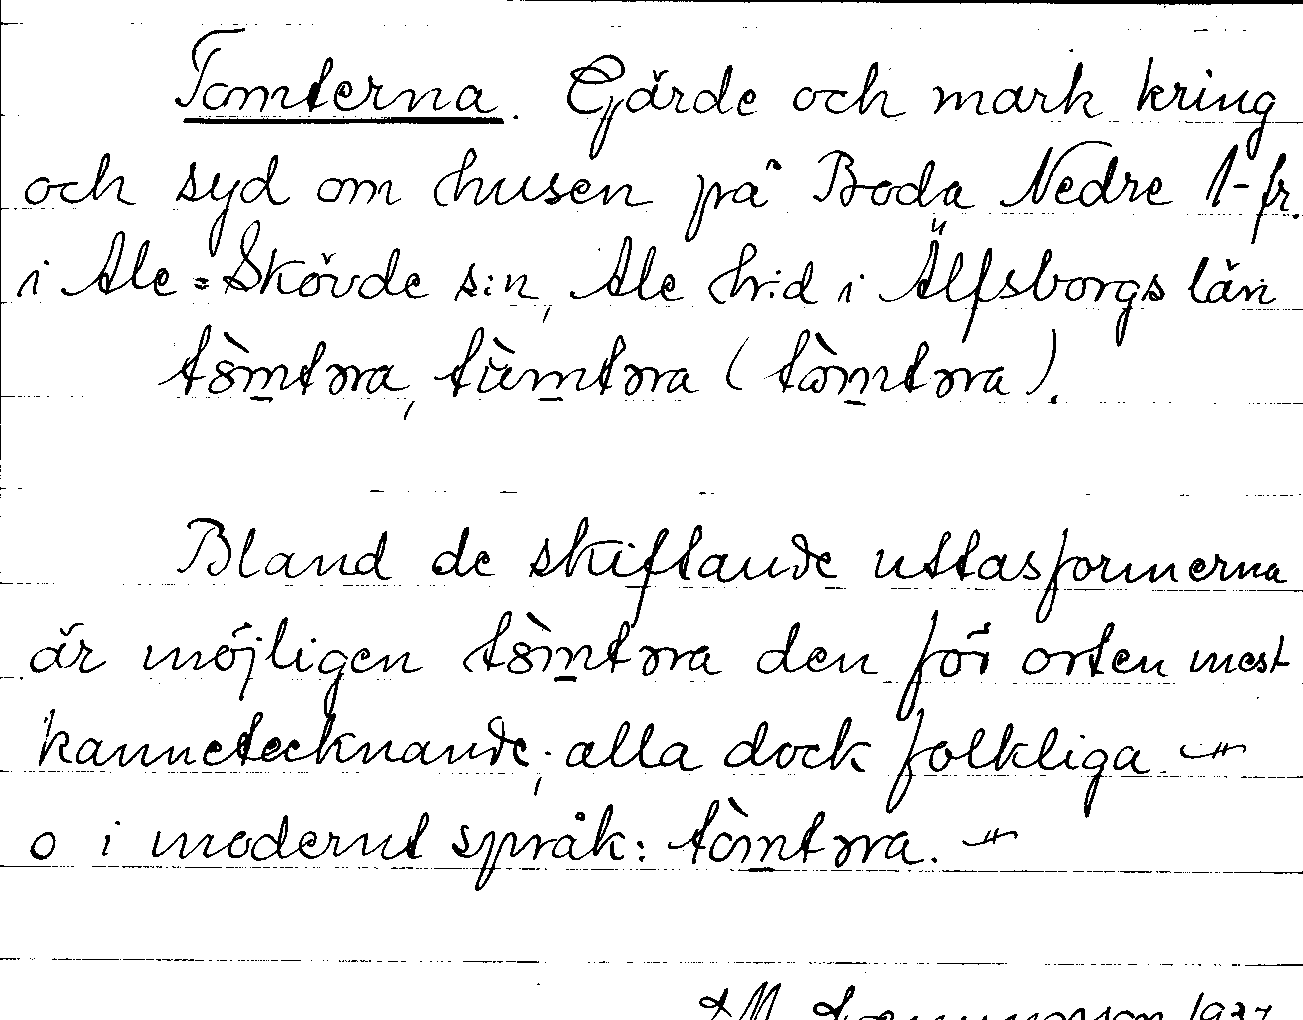 Tomterna. Gärde och mark kring
och syd om husen på Boda Nedre 1-fr.
i Ale=Skövde s:n, Ale h:d i Älfsborgs län
tòmtəra, tùmtəra (tòmtəra).
Bland de skiftande uttasformerna
är möjligen tòmtəra den för orten mest
kännetecknande; alla dock folkliga. –"–
o i modernt språk: tòmtəra. –"–